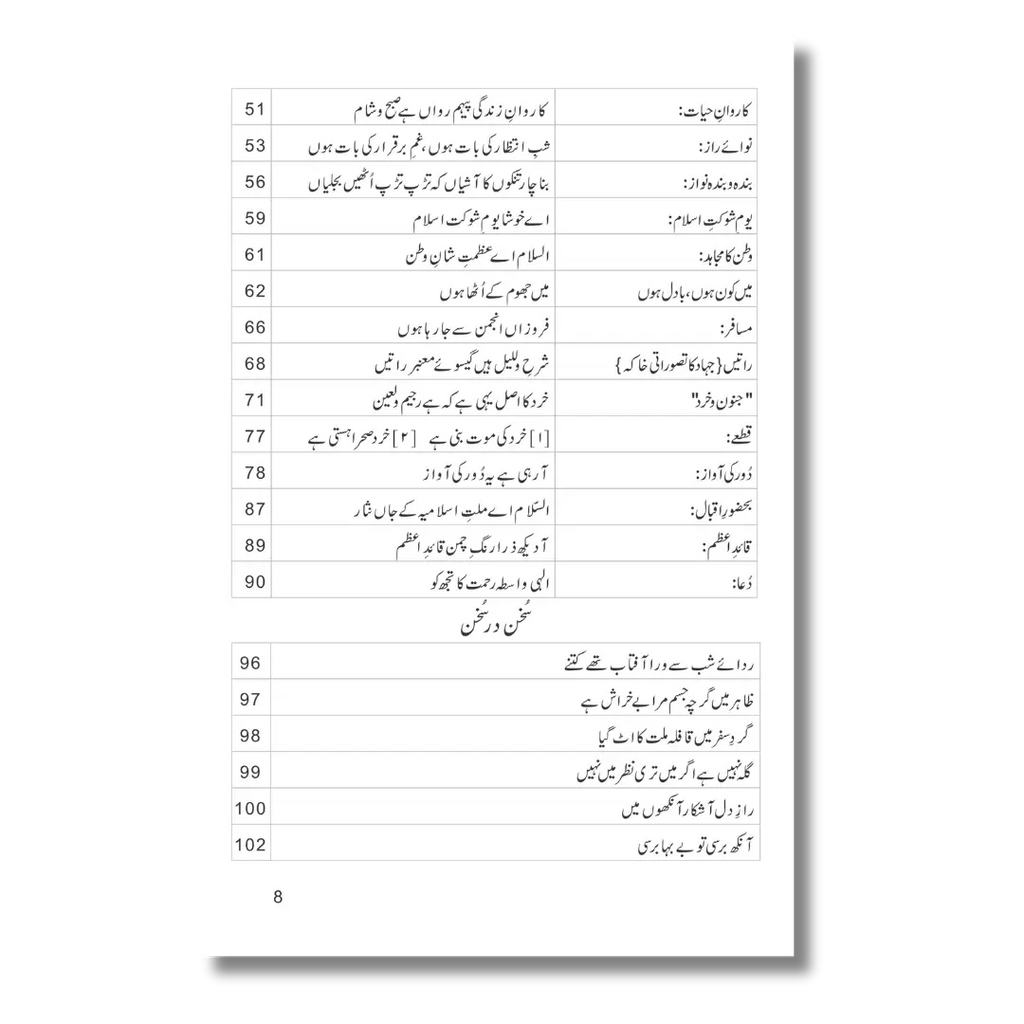 کاروانِ حیات: کاروانِ زندگی پیہم رواں ہے صبح و شام 51
نوائے راز: شبِ انتظار کی بات ہوں، غمِ برقرار کی بات ہوں 53
بندہ و بندہ نواز: بنا چار تنکوں کا آشیاں کہ تڑپ تڑپ اُٹھیں بجلیاں 56
یومِ شوکتِ اسلام: اے خوشا یومِ شوکت اسلام 59
وطن کا مجاہد: السلام اے عظمتِ شانِ وطن 61
میں کون ہوں، بادل ہوں میں جھوم کے اُٹھا ہوں 62
مسافر: فروزاں انجمن سے جا رہا ہوں 66
راتیں {جہاد کا تصوراتی خاکہ} شرحِ والیل ہیں گیسوئے معنبر راتیں 68
"جنون و خرد" خرد کا اصل یہی ہے کہ ہے رجیم و لعین 71
قطعے: [۱] خرد کی موت بنی ہے [۲] خرد صحرا ہستی ہے 77
دُور کی آواز: آ رہی ہے یہ دُور کی آواز 78
بحضورِ اقبال: السّلام اے ملتِ اسلامیہ کے جاں نثار 87
قائدِ اعظم: آ دیکھ ذرا رنگِ چمن قائدِ اعظم 89
دُعا: الٰہی واسطہ رحمت کا تجھ کو 90
سُخن در سُخن
ردائے شب سے ورا آفتاب تھے کتنے 96
ظاہر میں گرچہ جسم مرا بے خراش ہے 97
گردِ سفر میں قافلہ ملت کا اٹ گیا 98
گلہ نہیں ہے اگر میں تری نظر میں نہیں 99
رازِ دل آشکار آنکھوں میں 100
آنکھ برسی تو بے بہا برسی 102
8